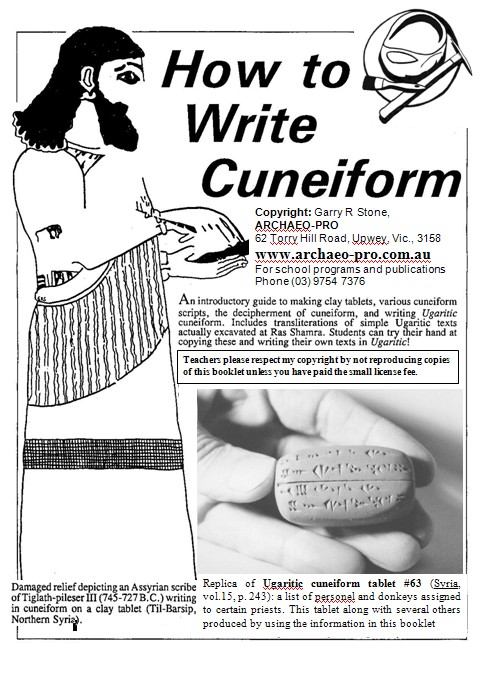 How to
Write
Cuneiform
Copyright: Garry R Stone,
ARCHAEO-PRO
62 Torry Hill Road, Upwey, Vic., 3158
www.archaeo-pro.com.au
For school programs and publications
Phone (03) 9754 7376
An introductory guide to making clay tablets, various cuneiform
scripts, the decipherment of cuneiform, and writing Ugaritic
cuneiform. Includes transliterations of simple Ugaritic texts
actually excavated at Ras Shamra. Students can try their hand at
copying these and writing their own texts in Ugaritic!
Teachers please respect my copyright by not reproducing copies
of this booklet unless you have paid the small license fee.
Damaged relief depicting an Assyrian scribe
of Tiglath-pileser III (745-727 B.C.) writing
in cuneiform on a clay tablet (Til-Barsip,
Northern Syria).
Replica of Ugaritic cuneiform tablet #63 (Syria,
vol.15, p. 243): a list of personal and donkeys assigned
to certain priests. This tablet along with several others
produced by using the information in this booklet